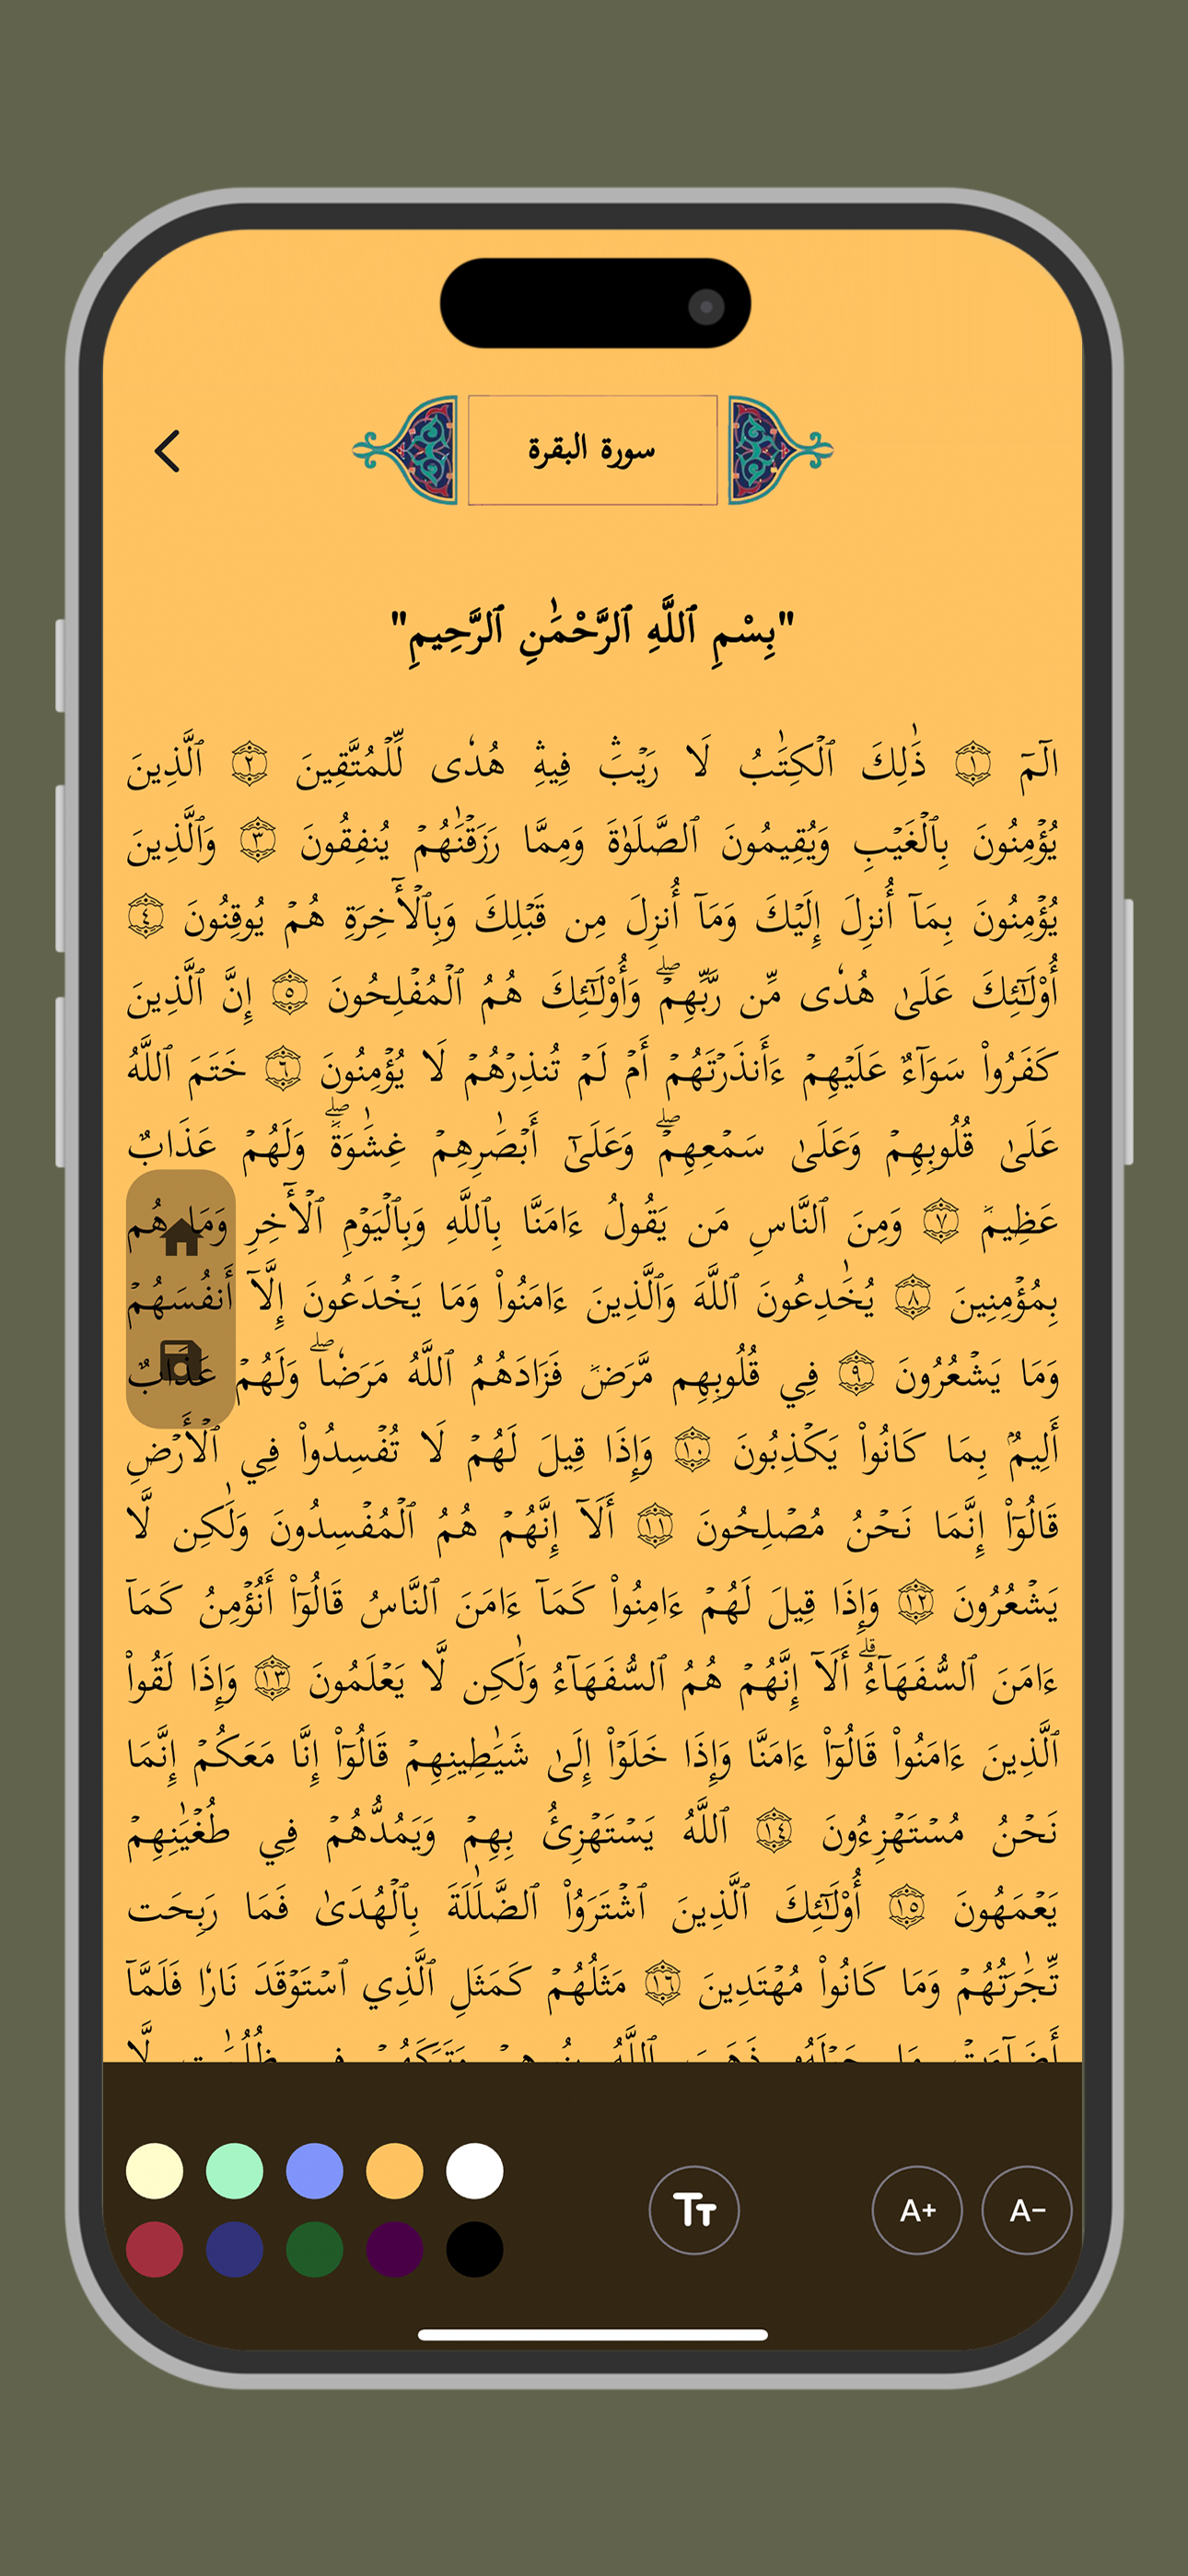 سورة البقرة
"بِسْمِ ٱللَّهِ ٱلرَّحْمَٰنِ ٱلرَّحِيمِ"
الٓمٓ ١ ذَٰلِكَ ٱلْكِتَٰبُ لَا رَيْبَۛ فِيهِۛ هُدًى لِّلْمُتَّقِينَ ٢ ٱلَّذِينَ
يُؤْمِنُونَ بِٱلْغَيْبِ وَيُقِيمُونَ ٱلصَّلَوٰةَ وَمِمَّا رَزَقْنَٰهُمْ يُنفِقُونَ ٣ وَٱلَّذِينَ
يُؤْمِنُونَ بِمَآ أُنزِلَ إِلَيْكَ وَمَآ أُنزِلَ مِن قَبْلِكَ وَبِٱلْأَٓخِرَةِ هُمْ يُوقِنُونَ ٤
أُوْلَٰٓئِكَ عَلَىٰ هُدًى مِّن رَّبِّهِمْۖ وَأُوْلَٰٓئِكَ هُمُ ٱلْمُفْلِحُونَ ٥ إِنَّ ٱلَّذِينَ
كَفَرُواْ سَوَآءٌ عَلَيْهِمْ ءَأَنذَرْتَهُمْ أَمْ لَمْ تُنذِرْهُمْ لَا يُؤْمِنُونَ ٦ خَتَمَ ٱللَّهُ
عَلَىٰ قُلُوبِهِمْ وَعَلَىٰ سَمْعِهِمْۖ وَعَلَىٰٓ أَبْصَٰرِهِمْ غِشَٰوَةٌۖ وَلَهُمْ عَذَابٌ
عَظِيمٌ ٧ وَمِنَ ٱلنَّاسِ مَن يَقُولُ ءَامَنَّا بِٱللَّهِ وَبِٱلْيَوْمِ ٱلْأَٓخِرِ وَمَا هُم
بِمُؤْمِنِينَ ٨ يُخَٰدِعُونَ ٱللَّهَ وَٱلَّذِينَ ءَامَنُواْ وَمَا يَخْدَعُونَ إِلَّآ أَنفُسَهُمْ
وَمَا يَشْعُرُونَ ٩ فِي قُلُوبِهِم مَّرَضٌ فَزَادَهُمُ ٱللَّهُ مَرَضًاۖ وَلَهُمْ عَذَابٌ
أَلِيمُۢ بِمَا كَانُواْ يَكْذِبُونَ ١٠ وَإِذَا قِيلَ لَهُمْ لَا تُفْسِدُواْ فِي ٱلْأَرْضِ
قَالُوٓاْ إِنَّمَا نَحْنُ مُصْلِحُونَ ١١ أَلَآ إِنَّهُمْ هُمُ ٱلْمُفْسِدُونَ وَلَٰكِن لَّا
يَشْعُرُونَ ١٢ وَإِذَا قِيلَ لَهُمْ ءَامِنُواْ كَمَآ ءَامَنَ ٱلنَّاسُ قَالُوٓاْ أَنُؤْمِنُ كَمَآ
ءَامَنَ ٱلسُّفَهَآءُۗ أَلَآ إِنَّهُمْ هُمُ ٱلسُّفَهَآءُ وَلَٰكِن لَّا يَعْلَمُونَ ١٣ وَإِذَا لَقُواْ
ٱلَّذِينَ ءَامَنُواْ قَالُوٓاْ ءَامَنَّا وَإِذَا خَلَوْاْ إِلَىٰ شَيَٰطِينِهِمْ قَالُوٓاْ إِنَّا مَعَكُمْ إِنَّمَا
نَحْنُ مُسْتَهْزِءُونَ ١٤ ٱللَّهُ يَسْتَهْزِئُ بِهِمْ وَيَمُدُّهُمْ فِي طُغْيَٰنِهِمْ
يَعْمَهُونَ ١٥ أُوْلَٰٓئِكَ ٱلَّذِينَ ٱشْتَرَوُاْ ٱلضَّلَٰلَةَ بِٱلْهُدَىٰ فَمَا رَبِحَت
تِّجَٰرَتُهُمْ وَمَا كَانُواْ مُهْتَدِينَ ١٦ مَثَلُهُمْ كَمَثَلِ ٱلَّذِي ٱسْتَوْقَدَ نَارًا فَلَمَّآ
Tт A+ A−